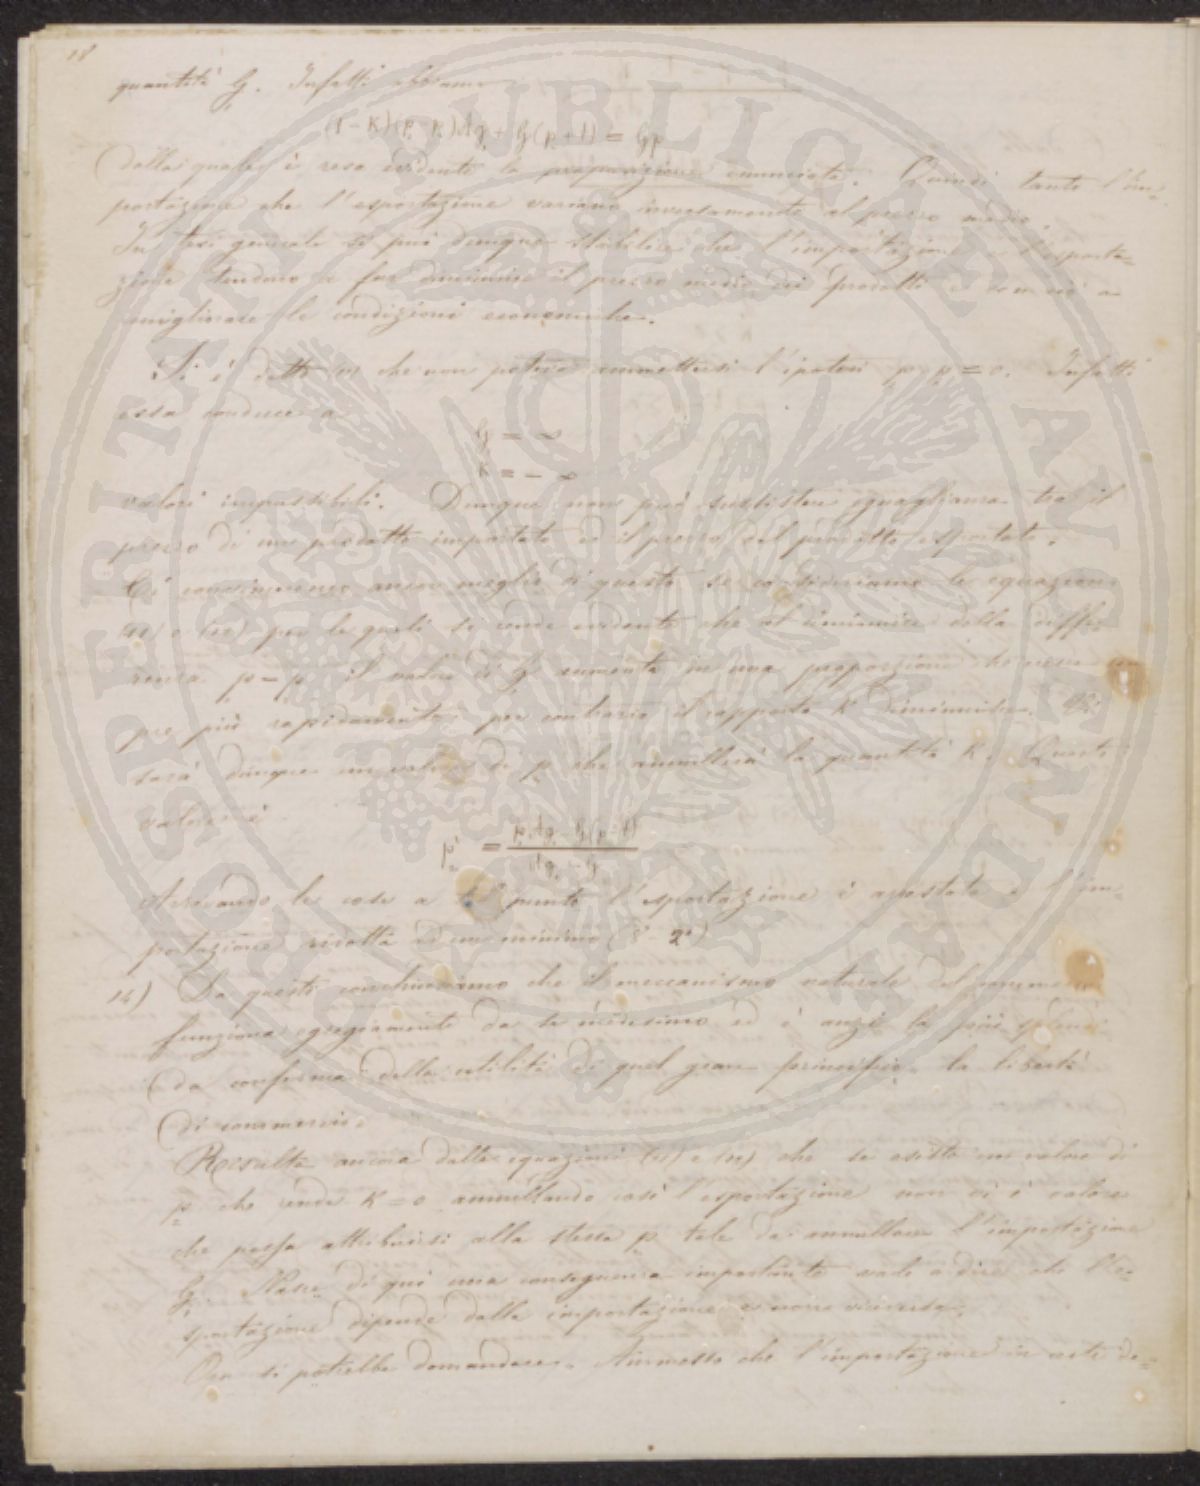 18
quantità G₁. Infatti abbiamo
(1-K)(p₂-p₁)Ag₁ + G₁(p+1) = Gp
dalla quale è resa evidente la proposizione enunciata. Quindi tanto l'im=
portazione che l'esportazione variano inversamente al prezzo medio.
In tesi generale si può dunque stabilire che l'importazione e l'esporta=
zione tendano a far diminuire il prezzo medio dei prodotti e con ciò a
migliorare le condizioni economiche.
Si è detto che non potersi ammettersi l'ipotesi p₁-p₂=0. Infatti
essa conduce a
G₁ = ∞
K = - ∞
valori impossibili. Dunque non può sussistere eguaglianza tra il
prezzo di un prodotto importato ed il prezzo del prodotto esportato.
Ci convinceremo ancor meglio di questo se consideriamo le equazioni
(11) e (12) per le quali si rende evidente che al diminuire della diffe=
renza p₁-p₂ il valore di G₁ aumenta in una proporzione che cresce sem
pre più rapidamente; per contrario il rapporto K diminuisce. Vi
sarà dunque un valore di p₂ che annullerà la quantità K. Questo
valore è
p₂' = p₁Ag₁-G(p-1) / Ag₁-G
Arrivando le cose a tal punto l'esportazione è arrestata e l'im=
portazione ridotta ad un minimo (8-2°)
14) Da questo conchiudiamo che il meccanismo naturale del commercio
funziona egregiamente da se medesimo ed è anzi la più splendi
da conferma della utilità di quel gran principio, la libertà
di commercio.
Risulta ancora dalle equazioni (11) e (12) che se esiste un valore di
p₂ che rende K=0 annullando così l'esportazione non vi è valore
che possa attribuirsi alla stessa p₂ tale da annullare l'importazione
G₁. Nasce di qui una conseguenza importante vale a dire che l'e=
sportazione dipende dalla importazione e non viceversa.
Ora si potrebbe domandare. Ammesso che l'importazione in certe de=
PROSPERITATI PUBLICAE AUGENDAE